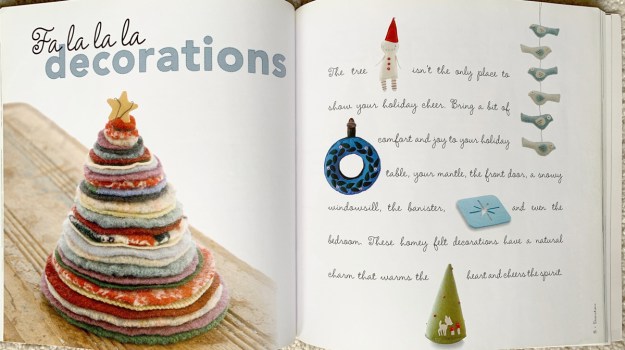 Fa la la la
decorations
The tree isn't the only place to
show your holiday cheer. Bring a bit of
comfort and joy to your holiday
table, your mantle, the front door, a snowy
windowsill, the banister, and even the
bedroom. These homey felt decorations have a natural
charm that warms the heart and cheers the spirit.